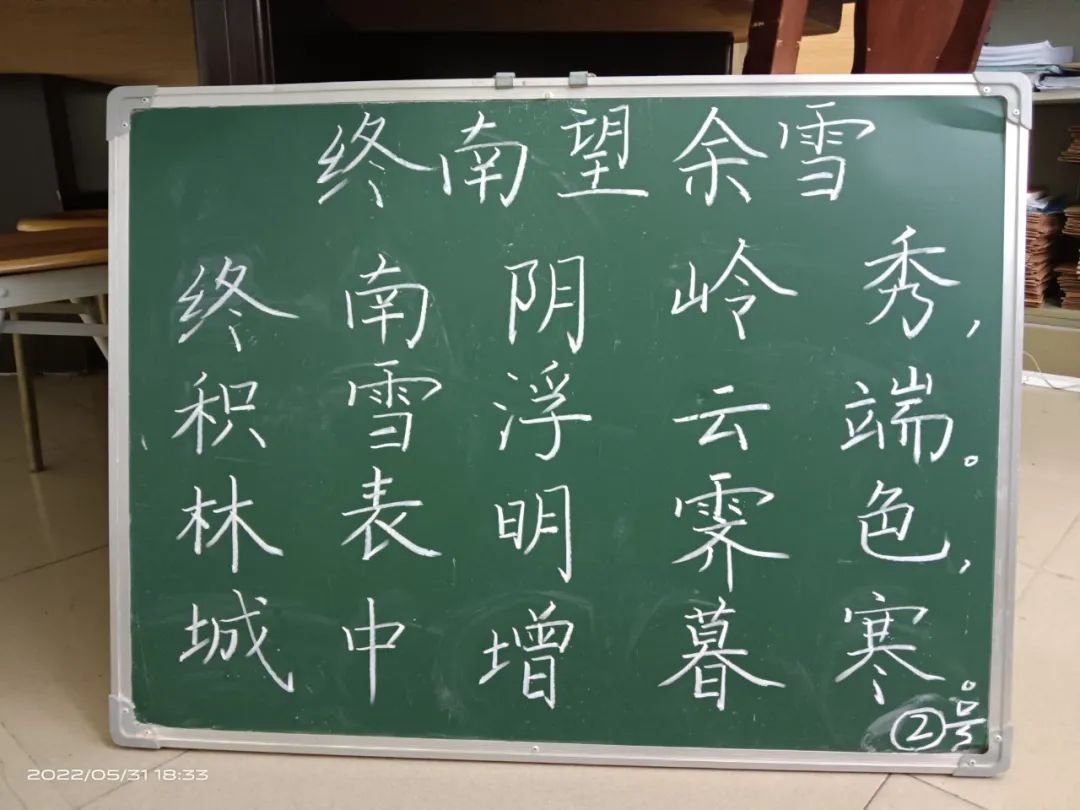 终南望余雪
终南阴岭秀,
积雪浮云端。
林表明霁色,
城中增暮寒。
②号
2022/05/31 18:33